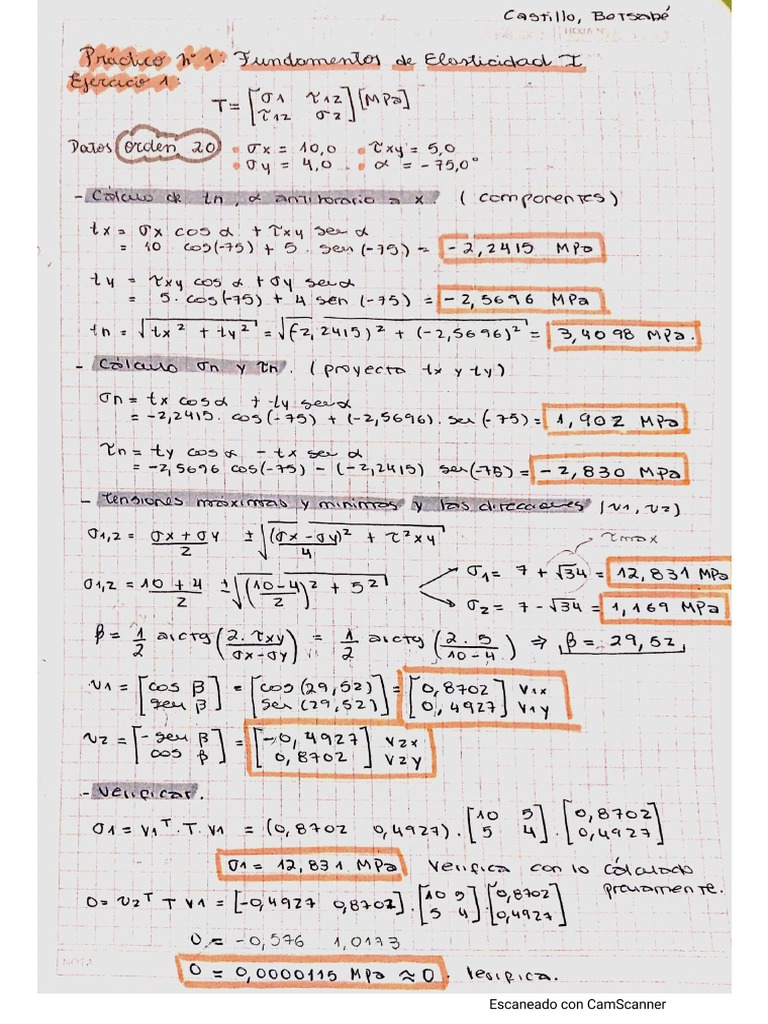 Castillo, Betsabé
Práctico N°1: Fundamentos de Elasticidad I
Ejercicio 1:
T = [σ1 τ12; τ12 σ2] [MPa]
Datos Orden 20 • σx = 10,0 • τxy = 5,0
• σy = 4,0 • α = -75,0°
- Cálculo de tn, α antihorario a x (componentes)
tx = σx cos α + τxy sen α
= 10 . cos(-75) + 5 . sen(-75) = -2,2415 MPa
ty = τxy cos α + σy sen α
= 5 . cos(-75) + 4 sen (-75) = -2,5696 MPa
tn = √(tx² + ty²) = √((-2,2415)² + (-2,5696)²) = 3,4098 MPa.
- Cálculo σn y τn. (proyecto tx y ty)
σn = tx cos α + ty sen α
= -2,2415 . cos(-75) + (-2,5696) . sen(-75) = 1,902 MPa
τn = ty cos α - tx sen α
= -2,5696 cos(-75) - (-2,2415) sen(-75) = -2,830 MPa
- tensiones máximas y mínimas y las direcciones (v1, v2)
τmax
σ1,2 = (σx + σy)/2 ± √((σx - σy)²/4 + τ²xy)
σ1,2 = (10 + 4)/2 ± √(((10-4)/2)² + 5²)
σ1 = 7 + √34 = 12,831 MPa
σ2 = 7 - √34 = 1,169 MPa
β = 1/2 arctg (2.τxy/(σx-σy)) = 1/2 arctg (2.5/(10-4)) ⇒ β = 29,52
v1 = [cos β; sen β] = [cos(29,52); sen(29,52)] = [0,8702; 0,4927] v1x v1y
v2 = [-sen β; cos β] = [-0,4927; 0,8702] v2x v2y
- Verificar.
σ1 = v1ᵀ . T . v1 = (0,8702 0,4927) . [10 5; 5 4] . [0,8702; 0,4927]
σ1 = 12,831 MPa Verifica con lo cálculado previamente.
0 = v2ᵀ T v1 = [-0,4927 0,8702] . [10 5; 5 4] . [0,8702; 0,4927]
0 = -0,576 1,0173
0 = 0,0000115 MPa ≈ 0 . Verifica.
NOTA
Escaneado con CamScanner